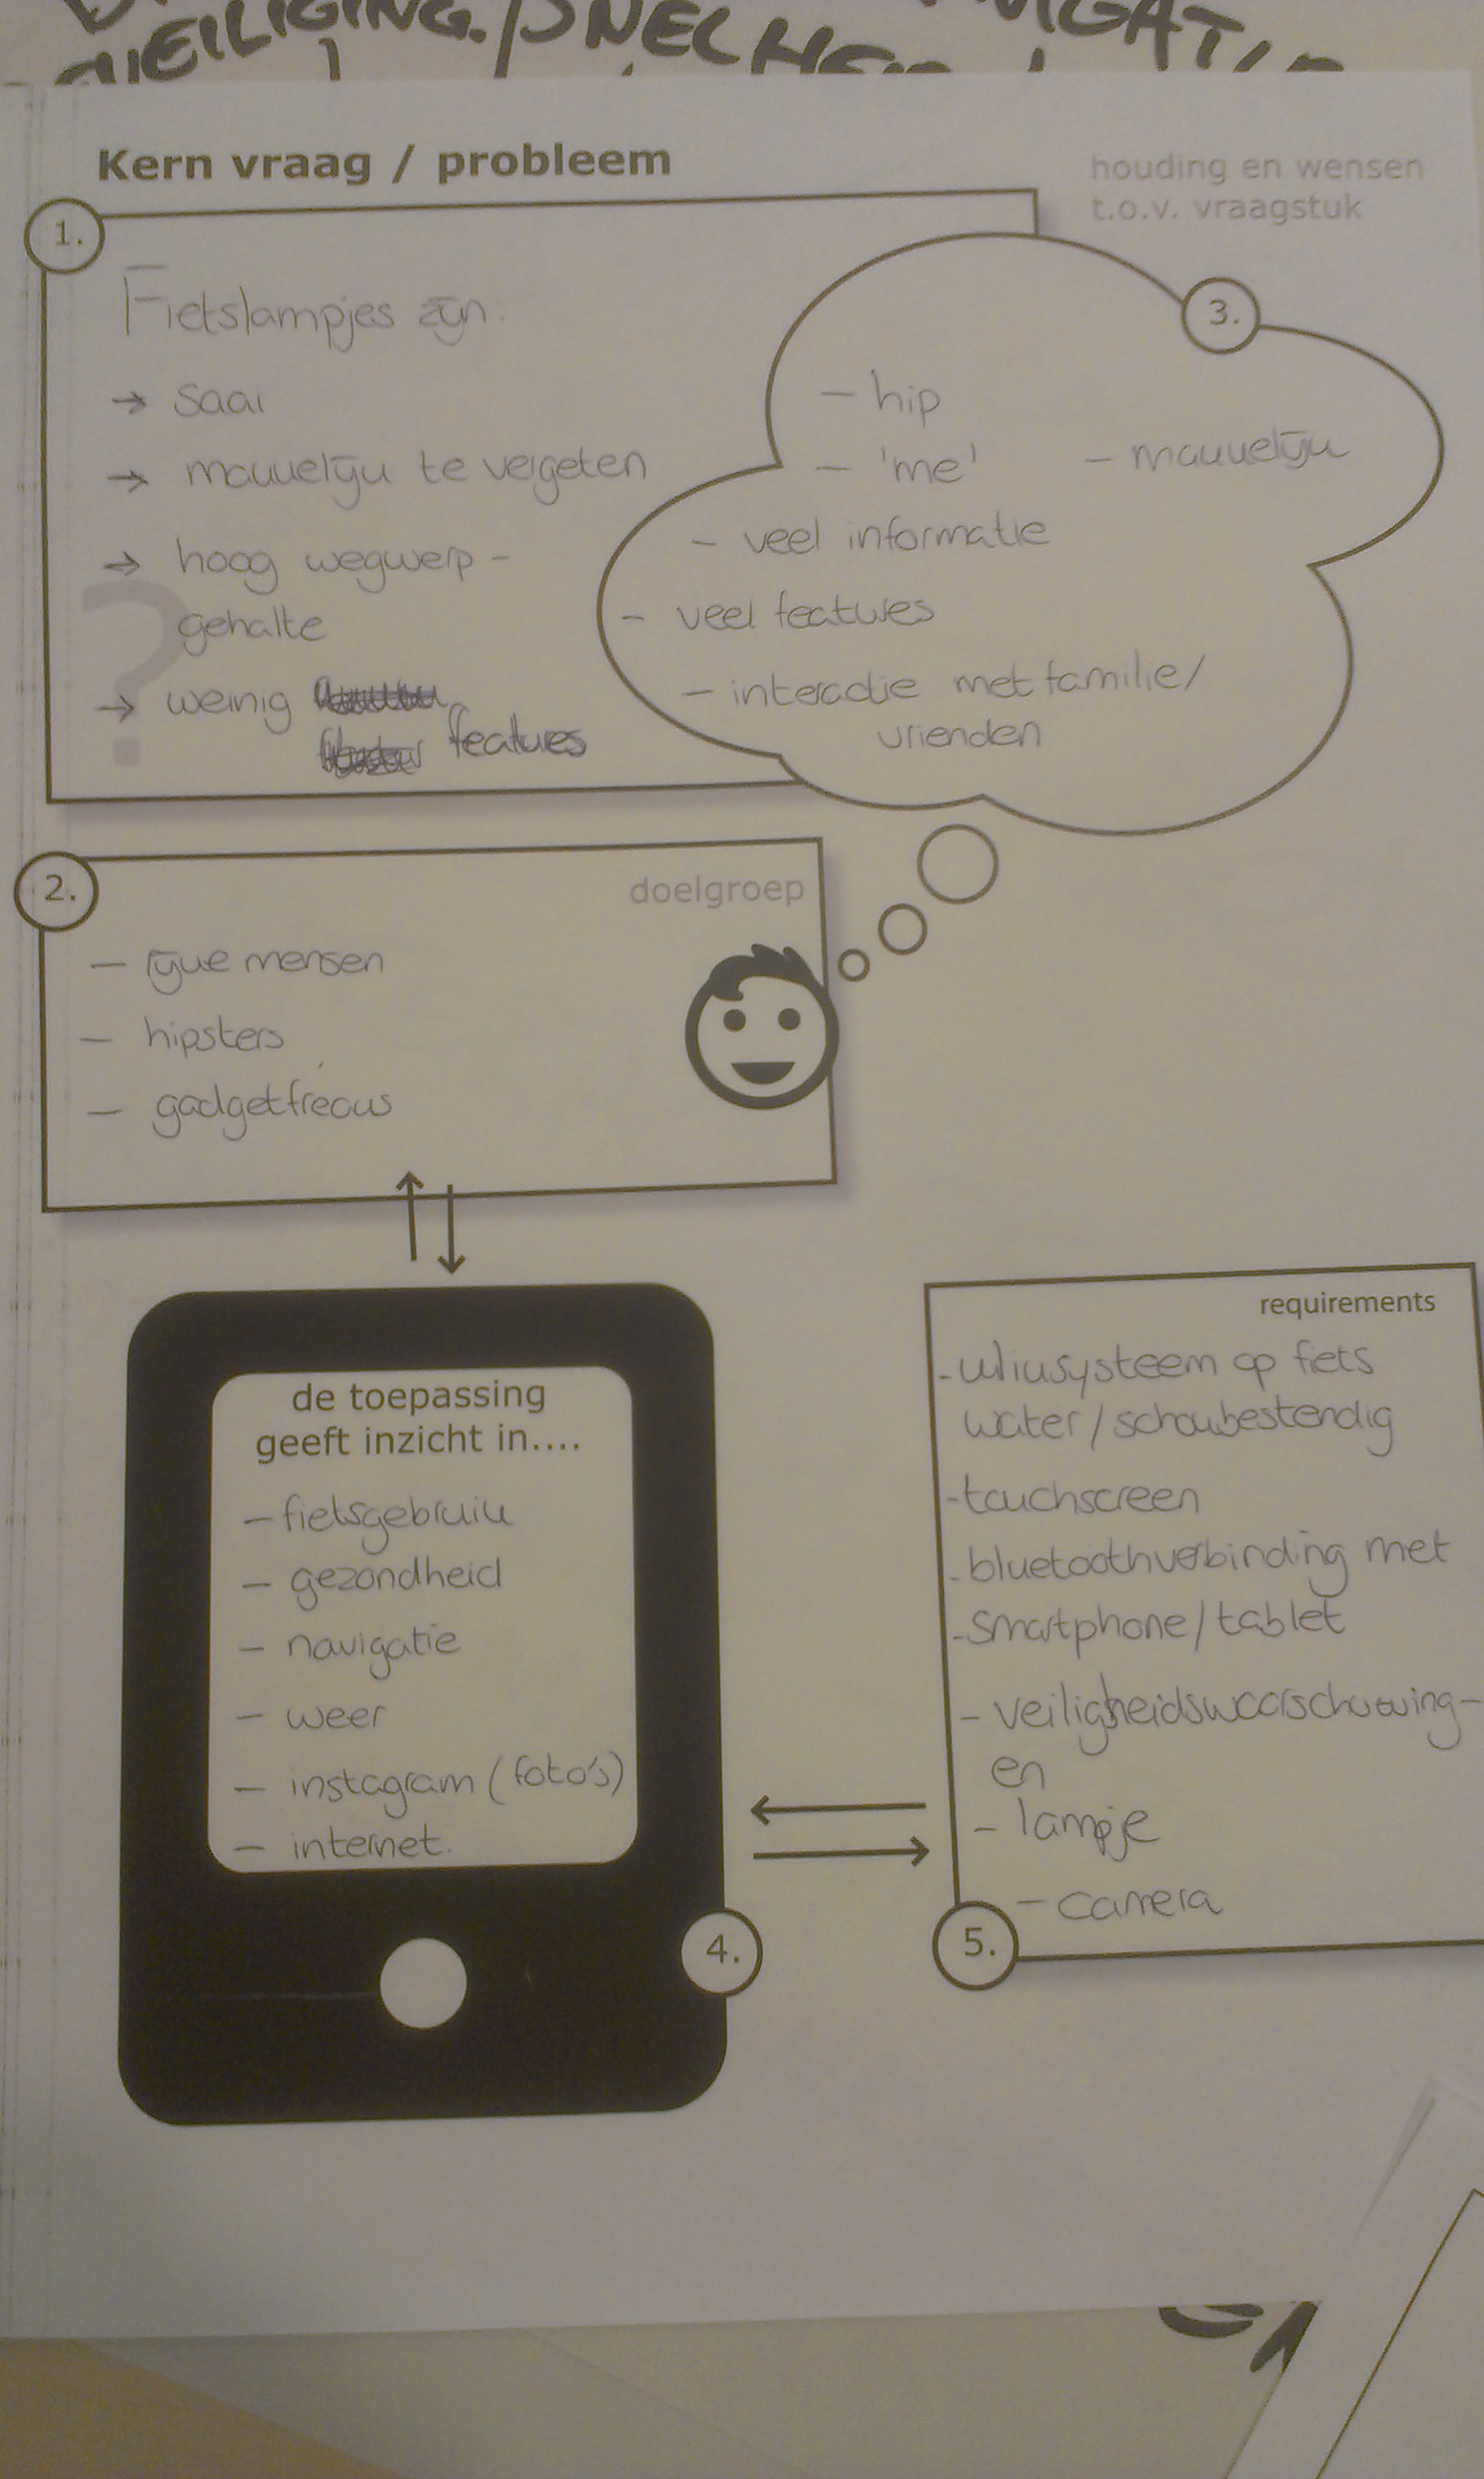 VEILIGING. / SNELHEID
Kern vraag / probleem
houding en wensen
t.o.v. vraagstuk
1.
Fietslampjes zijn:
→ saai
→ makkelijk te vergeten
→ hoog wegwerp-
gehalte
→ weinig
features
3.
- hip
- 'me'
- makkelijk
- veel informatie
- veel features
- interactie met familie/
vrienden
2.
doelgroep
- rijke mensen
- hipsters
- gadgetfreaks
de toepassing
geeft inzicht in....
- fietsgebruik
- gezondheid
- navigatie
- weer
- instagram (foto's)
- internet.
4.
requirements
- kliksysteem op fiets
water/schokbestendig
- touchscreen
- bluetoothverbinding met
- smartphone/tablet
- veiligheidswaarschuwing-
en
- lampje
- camera
5.